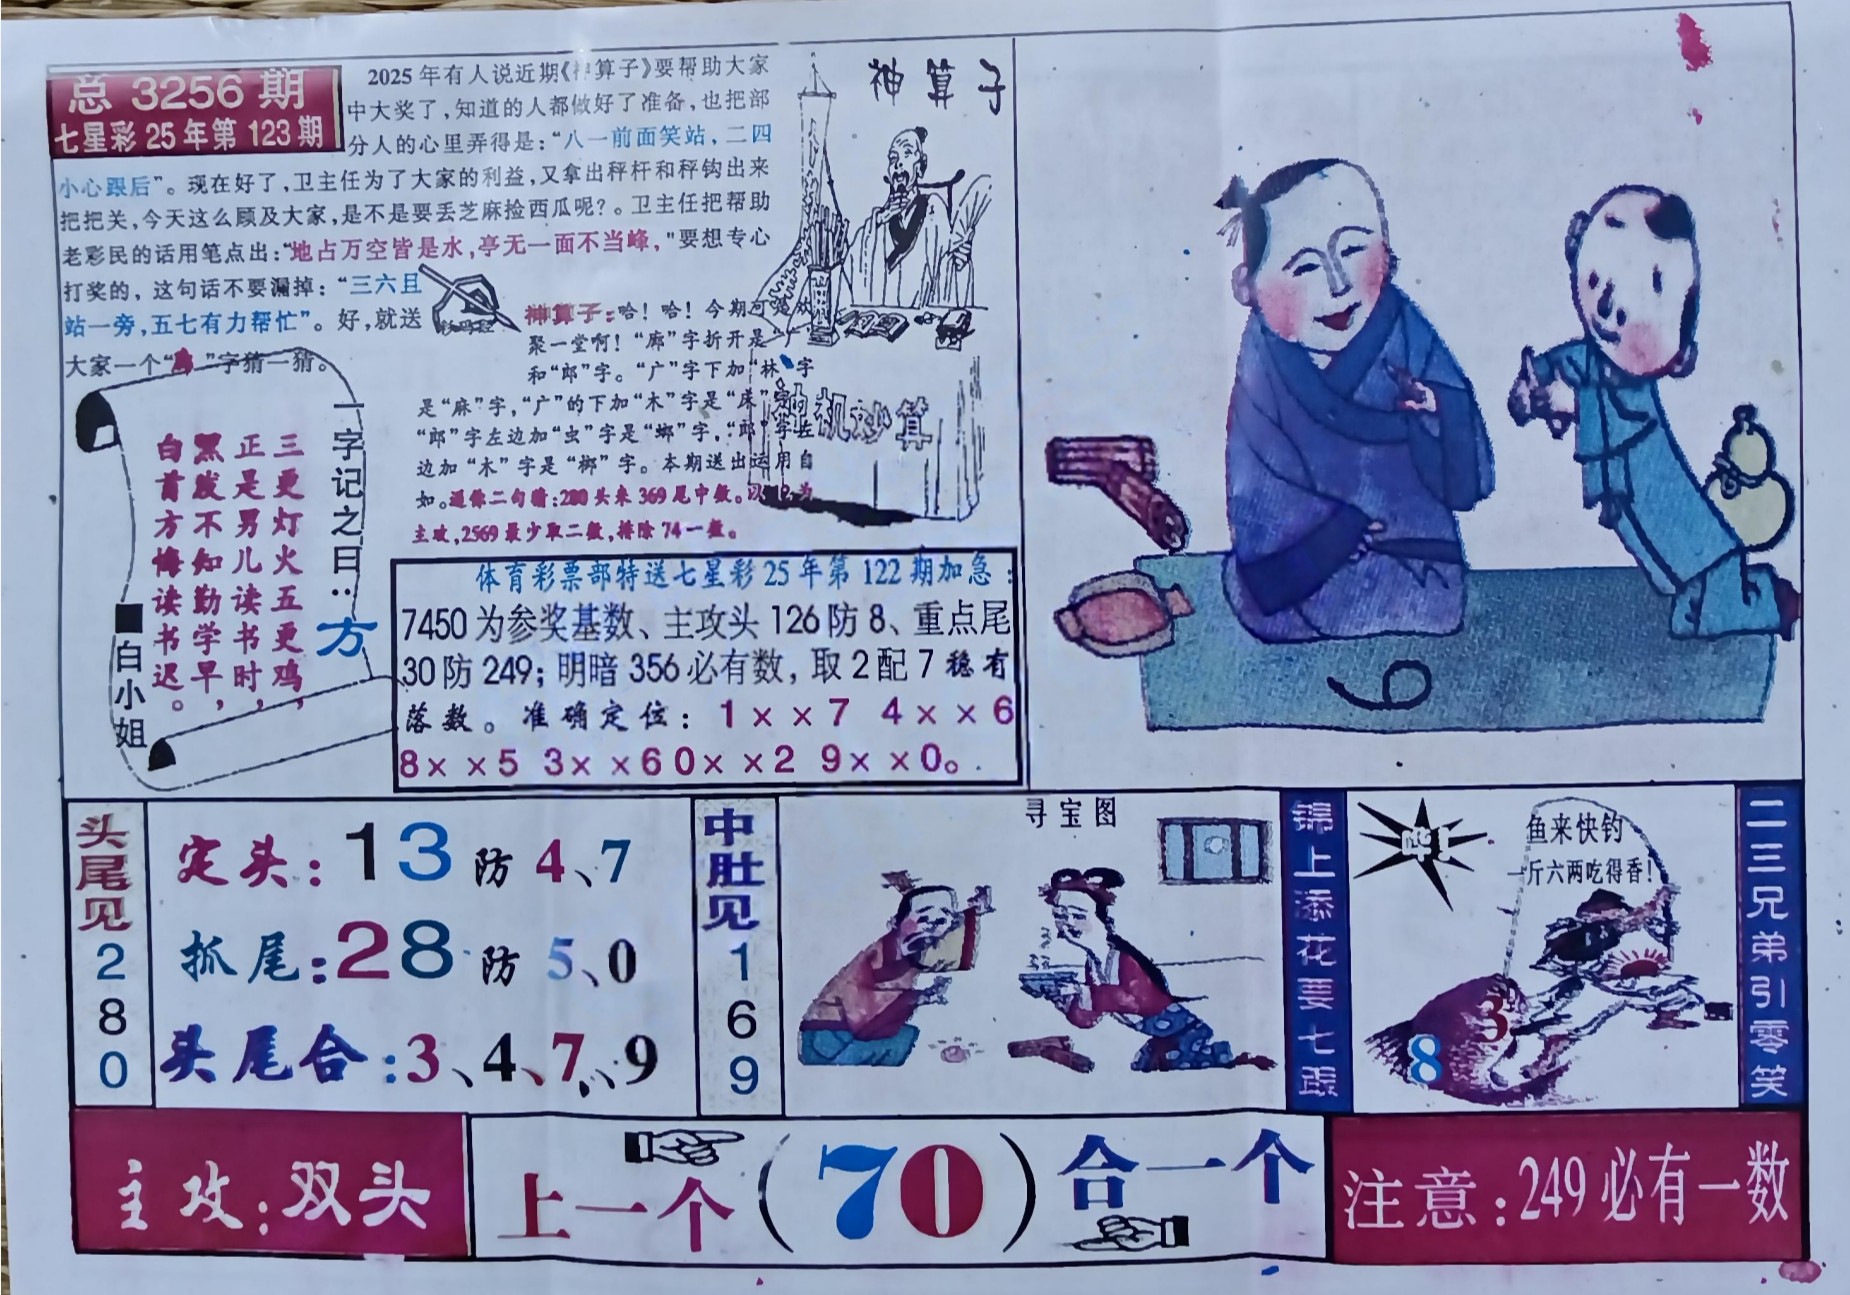 总 3256 期
七星彩 25 年第 123 期
2025 年有人说近期《神算子》要帮助大家
中大奖了，知道的人都做好了准备，也把部
分人的心里弄得是：“八一前面笑站，二四
小心跟后”。现在好了，卫主任为了大家的利益，又拿出秤杆和秤钩出来
把把关，今天这么顾及大家，是不是要丢芝麻捡西瓜呢？。卫主任把帮助
老彩民的话用笔点出：“地占万空皆是水，亭无一面不当峰，”要想专心
打奖的，这句话不要漏掉：“三六且
站一旁，五七有力帮忙”。好，就送
大家一个“ ”字猜一猜。
神算子
神算子：哈！哈！今期可 欢
聚一堂啊！“廊”字折开是“广”
和“郎”字。“广”字下加“林”字
是“麻”字，“广”的下加“木”字是“床”字
“郎”字左边加“虫”字是“螂”字，“郎”字左
边加“木”字是“榔”字。本期送出运用自
如。通俗二句猜：280 头来 369 尾中数。以 为
主攻，2569 最少取二数，排除 74 一数。
神机妙算
一字记之曰：方
三更灯火五更鸡，
正是男儿读书时，
黑发不知勤学早，
白首方悔读书迟。
■白小姐
体育彩票部特送七星彩 25 年第 122 期加急：
7450 为参奖基数、主攻头 126 防 8、重点尾
30 防 249；明暗 356 必有数，取 2 配 7 稳有
落数。准确定位：1××7 4××6
8××5 3××6 0××2 9××0。
头尾见 2 8 0
定头：13 防 4、7
抓尾：28 防 5、0
头尾合：3、4、7、9
中肚见 1 6 9
寻宝图
锦上添花要七跟
鱼来快钓
一斤六两吃得香！
3
8
二三兄弟引零笑
主攻：双头
上一个（70）合一个
注意：249 必有一数